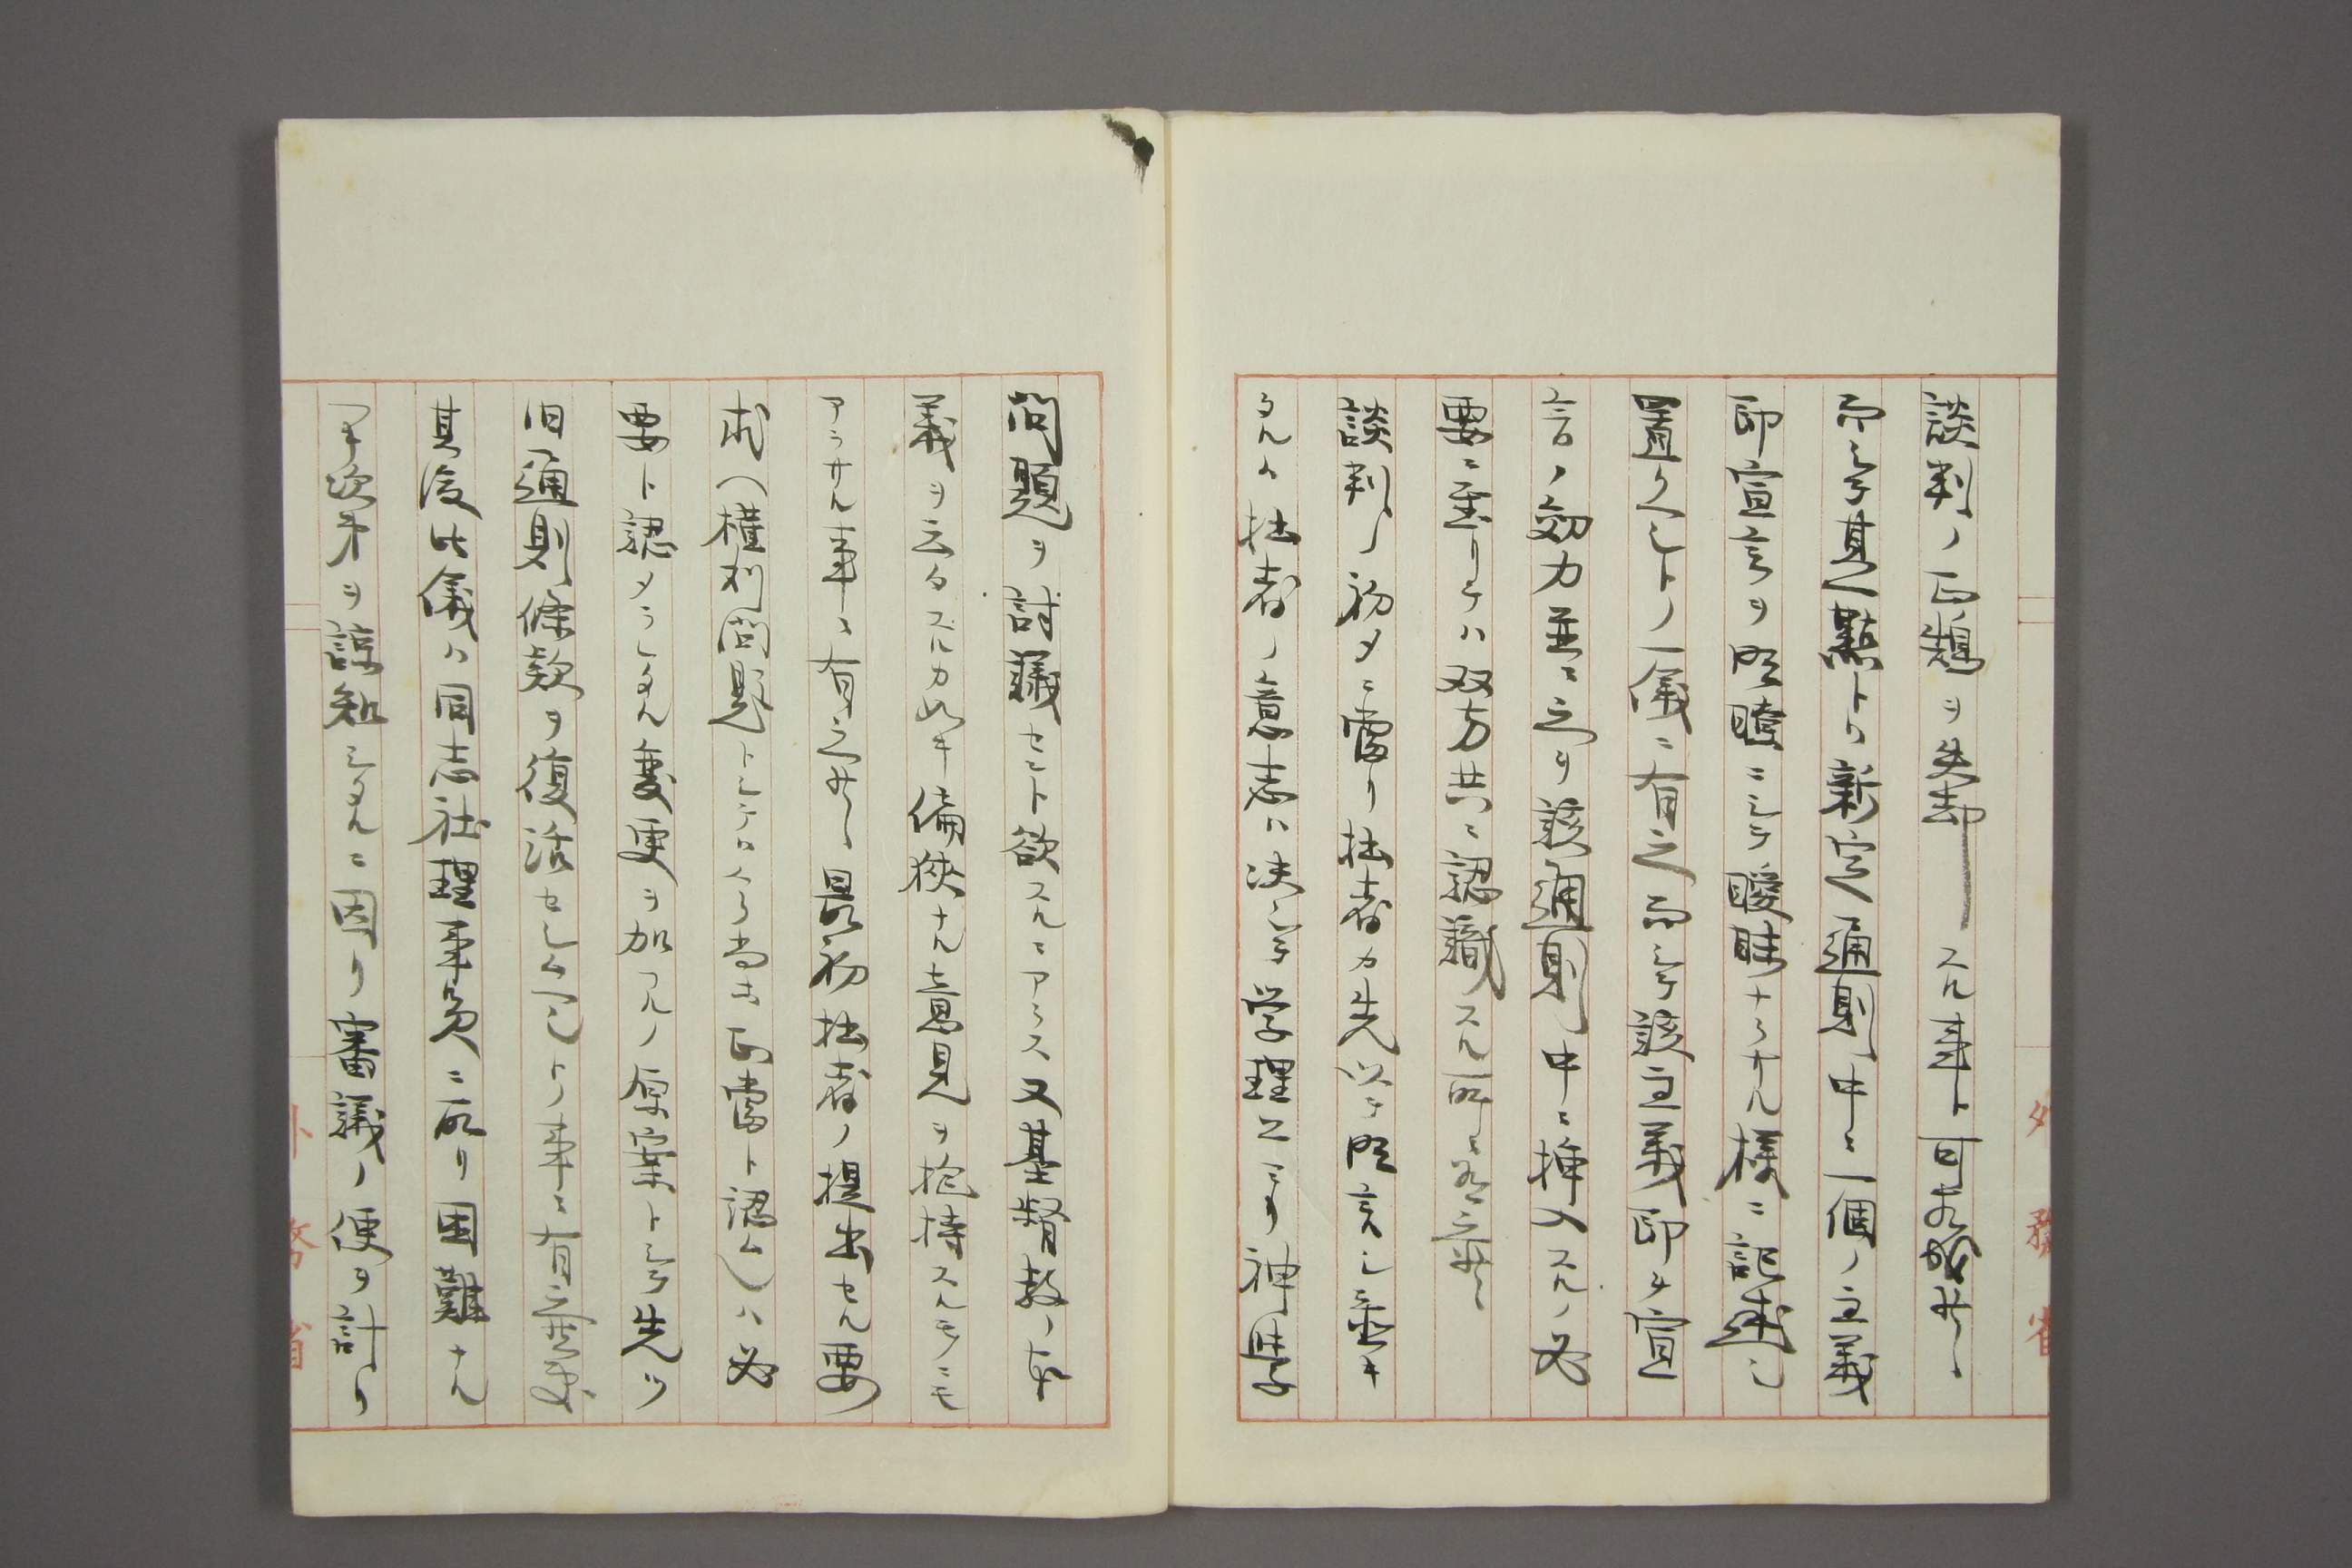 談判ノ正鵠ヲ失却スル事ト可相成候
而シテ其一點トハ新定通則中ニ一個ノ主義
即宣言ヲ明瞭ニシテ曖昧ナラサル様ニ記述シ
置クヘシトノ一儀ニ有之而シテ該主義即チ宣
言ノ効力並ニ之ヲ該通則中ニ挿入スルノ必
要ニ至リテハ双方共ニ認識スル所ニ有之候
談判ノ初メニ當リ拙者カ先以テ明言シ置キ
タルハ拙者ノ意志ハ決シテ学理上ニテ神學
問題ヲ討議セント欲スルニアラス又基督教ノ本
義ヲ云々スルカ如キ偏狹ナル意見ヲ抱持スルモノニモ
アラサル事ニ有之候最初拙者ノ提出セル要
求(權利問題トシテハ今尚ホ正當ト認ム)ハ必
要ト認メラレタル變更ヲ加フルノ原案トシテ先ツ
旧通則條款ヲ復活セシムヘシトノ事ニ有之候哉
其後此儀ハ同志社理事員ニ取リ困難ナル
次第ヲ諒知シタルニ因リ審議ノ便ヲ計リ
外務省
外務省